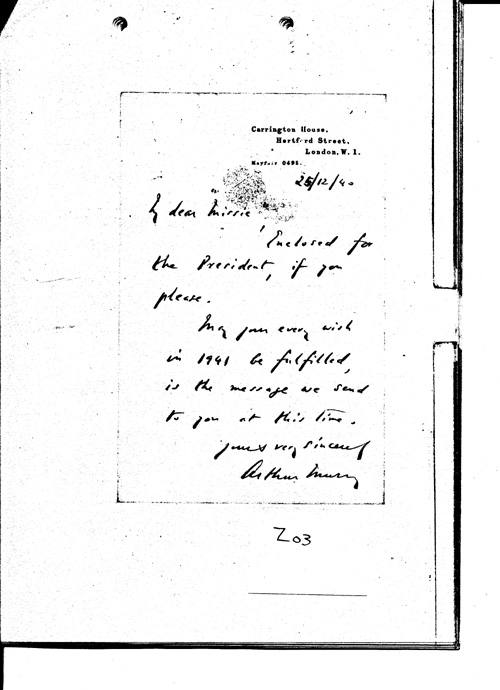 Carrington House,
Hertford Street,
London, W. 1.
Mayfair 0495.
25/12/40
My dear Missie,
Enclosed for
the President, if you
please.
May your every wish
in 1941 be fulfilled,
is the message we send
to you at this time.
Yours very sincerely
Arthur Murray
Z03